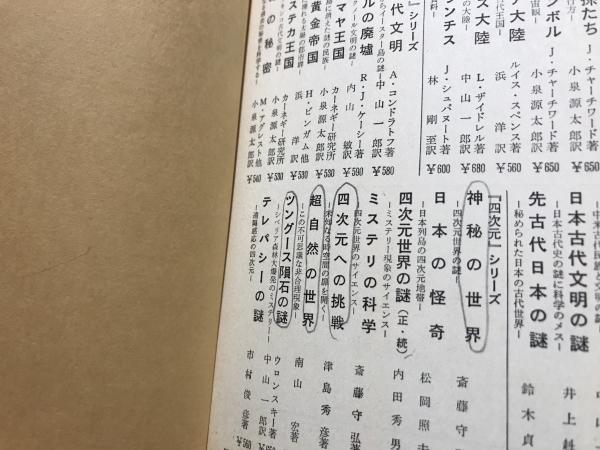 孫たち
J・チャーチワード著
小泉源太郎訳
¥650
ンボル
J・チャーチワード著
小泉源太郎訳
¥650
ア大陸
ルイス・スペンス著
浜洋訳
¥560
ス大陸
L・ザイドレル著
中山一郎訳
¥680
ンチス
J・シュパヌート著
林剛至訳
¥600
』シリーズ
代文明
イースター島の謎―
A・コンドラトフ著
中山一郎訳
¥580
ルの廃墟
ノール文明の謎―
R・J・ケーシー著
内山敏訳
¥590
マヤ王国
カーネギー研究所
小泉源太郎訳
¥530
黄金帝国
に消えた謎の民族―
H・ビンガム他
浜洋訳
¥530
ステカ王国
カーネギー研究所
小泉源太郎訳
¥530
の秘密
M・アグレスト他
小泉源太郎訳
¥540
日本古代文明の謎
―日本古代史の謎に科学のメス―
井上
先古代日本の謎
―秘められた日本の古代世界―
鈴木貞
『四次元』シリーズ
神秘の世界
―四次元世界の謎―
斎藤守
日本の怪奇
―日本列島の四次元地帯―
松岡照夫
四次元世界の謎(正・続)
―ミステリー現象のサイエンス―
内田秀男
ミステリの科学
―四次元世界のサイエンス―
斎藤守弘著
四次元への挑戦
―未知なる時空間の扉を開く―
津島秀彦著
超自然の世界
―この不可思議な非合理現象―
南山宏著
ツングース隕石の謎
―シベリア森林大爆発のミステリー―
ウロンスキー著
中山一郎訳
テレパシーの謎
―遠隔感応の四次元―
市村俊彦著